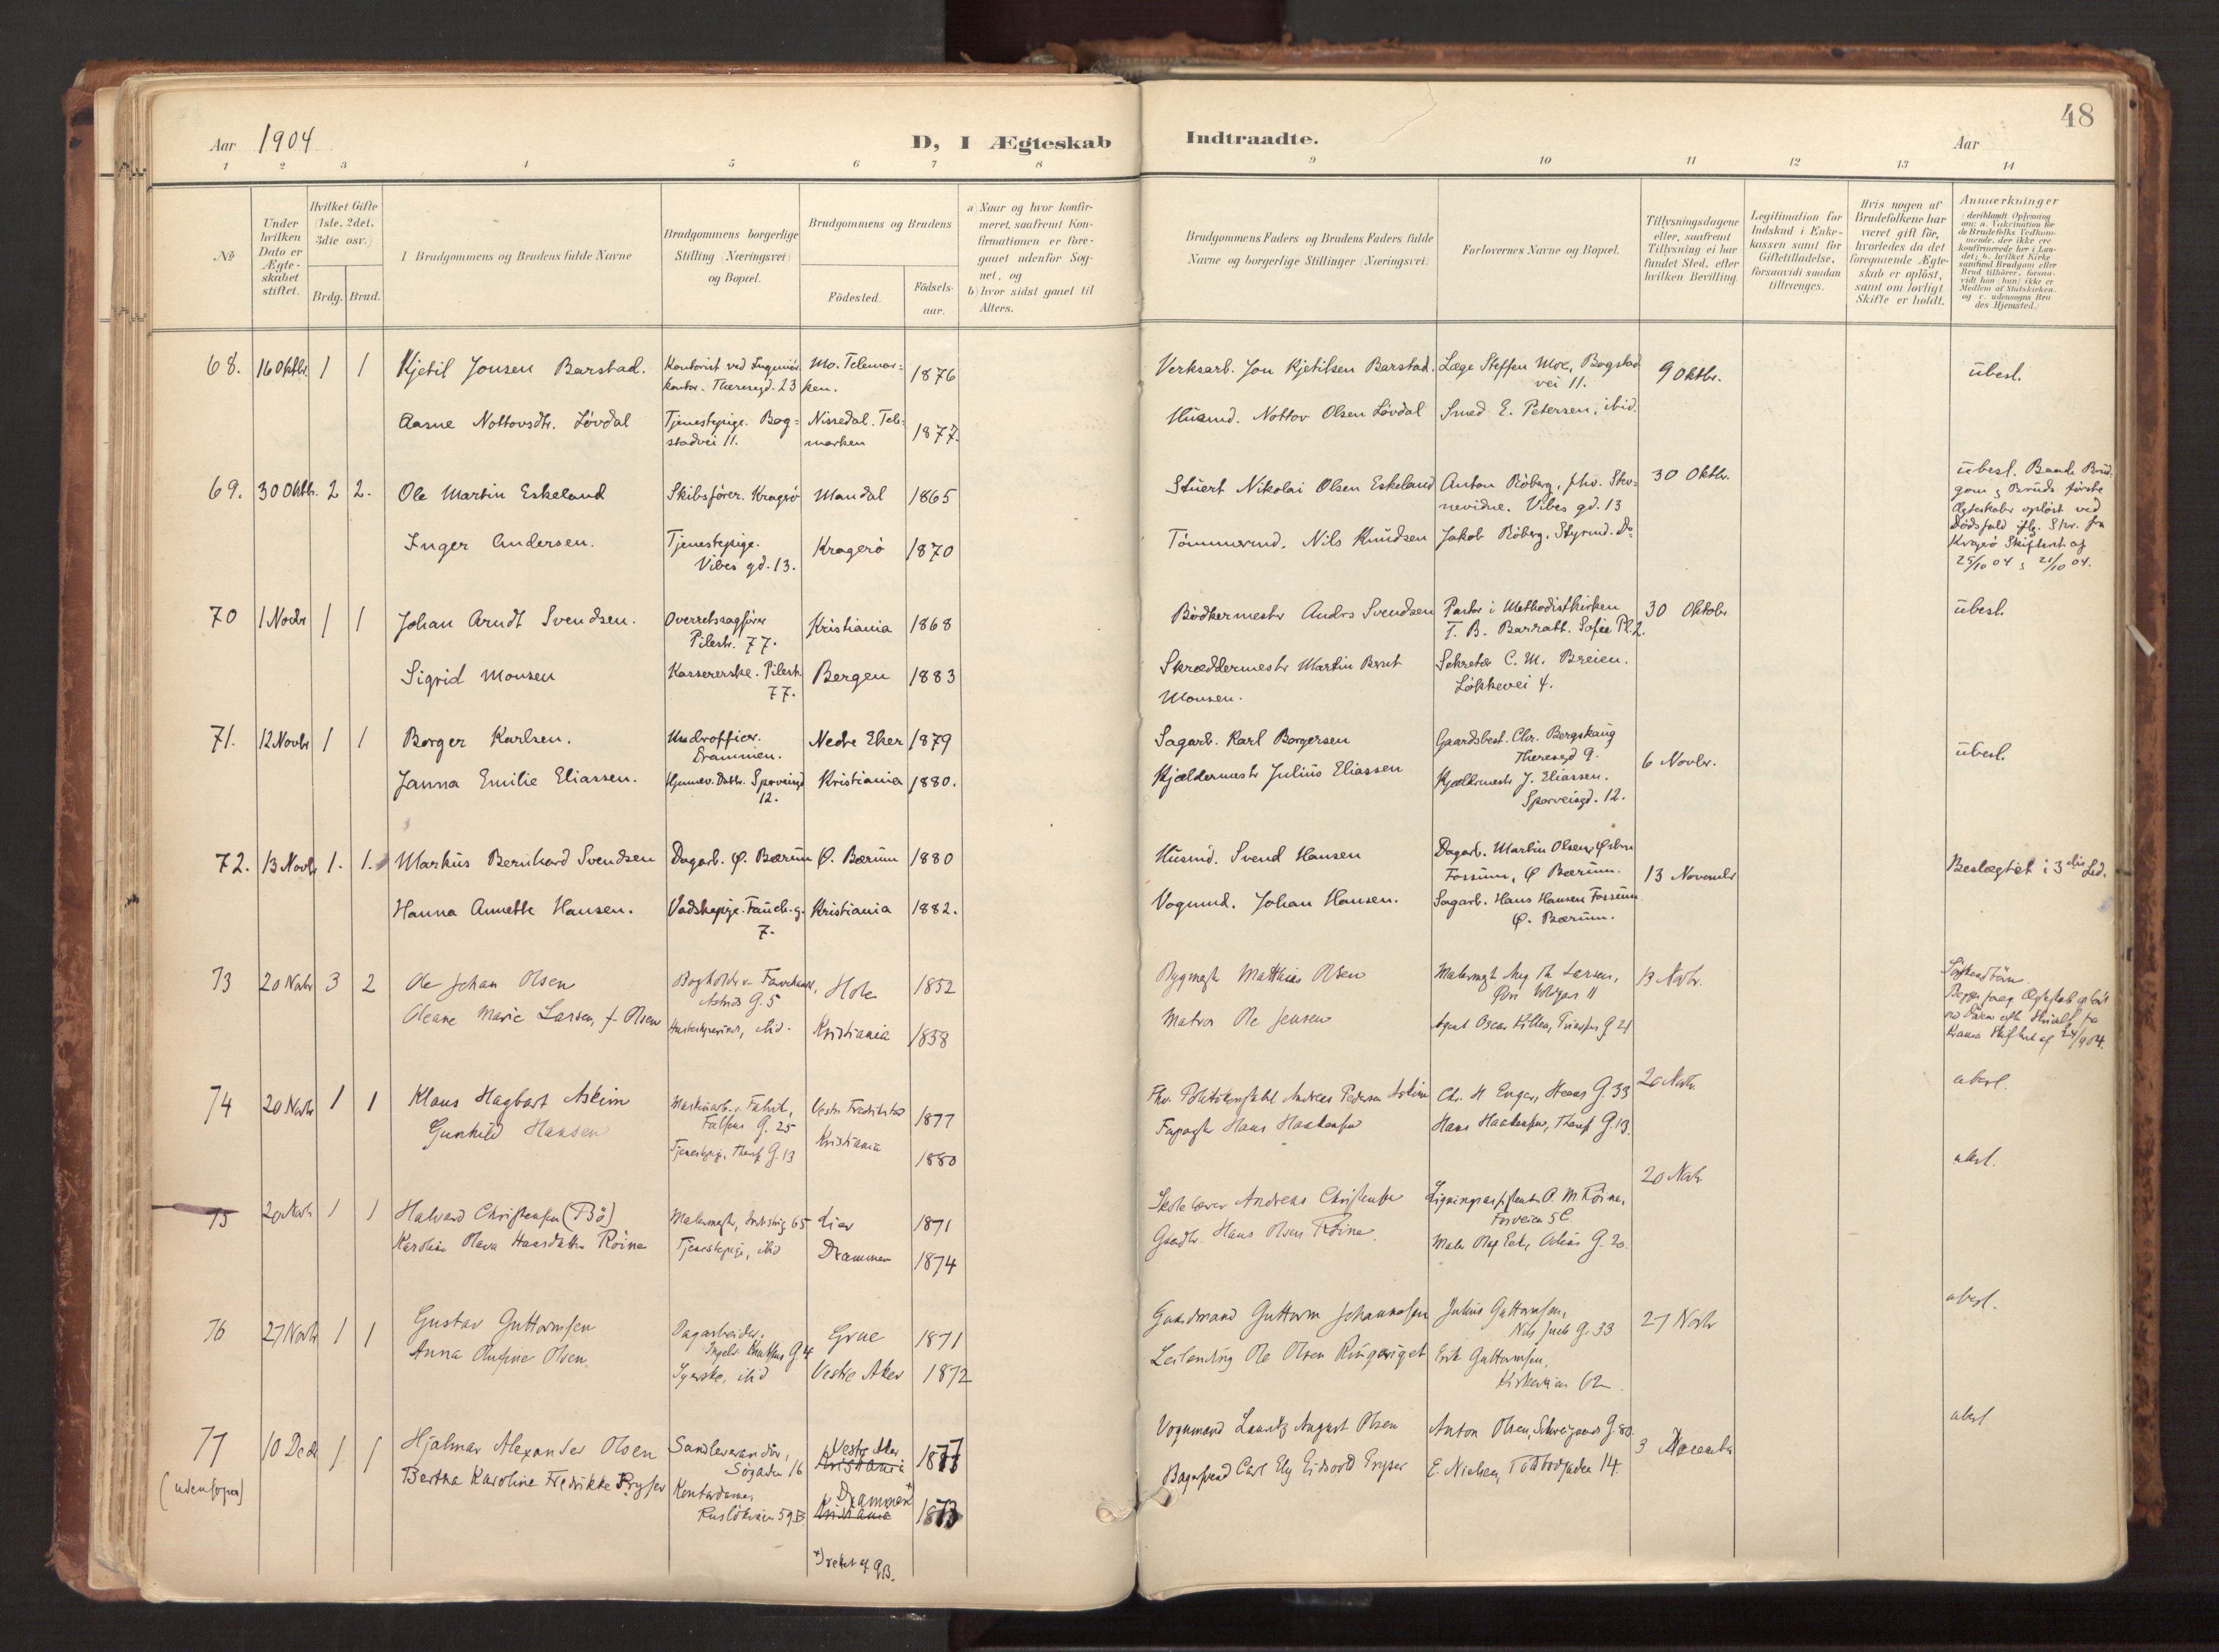 48
Aar 1904
D, I Ægteskab Indtraadte.
Aar
1 2 3 4 5 6 7 8 9 10 11 12 13 14
№
Under hvilken Dato er Ægteskabet stiftet.
Hvilket Gifte (1ste, 2det, 3die osv.)
Brdg. Brud.
Brudgommens og Brudens fulde Navne
Brudgommens borgerlige Stilling (Næringsvei) og Bopæl.
Brudgommens og Brudens
Fødested.
Fødselsaar.
a) Naar og hvor konfirmeret, saafremt Konfirmationen er foregaaet udenfor Sognet, og
b) hvor sidst gaaet til Alters.
Brudgommens Faders og Brudens Faders fulde Navne og borgerlige Stillinger (Næringsvei)
Forlovernes Navne og Bopæl.
Tillysningsdagene eller, saafremt Tillysning ei har fundet Sted, efter hvilken Bevilling.
Legitimation for Indskud i Enkekassen samt for Giftetilladelse, forsaavidt saadan tiltrænges.
Hvis nogen af Brudefolkene har været gift før, hvorledes da det foregaaende Ægteskab er opløst, samt om lovligt Skifte er holdt.
Anmerkninger
68. 16 Oktbr. 1 1 Kjetil Jonsen Barstad. Kontorist ved Ingeniørkontor. Theresegd. 23 Mo. Telemarken. 1876 Verksarb. Jon Kjetilsen Barstad. Læge Steffen Moe, Bogstadvei 11. 9 Oktbr. übesl.
Aasne Nottovsdtr. Løvdal Tjenestepige. Bogstadvei 11. Nissedal. Telemarken 1877. Husmd. Nottov Olsen Løvdal Smed E. Petersen, ibid.
69. 30 Oktbr. 2 2. Ole Martin Eskeland Skibsfører. Kragerø Mandal 1865 Stuert Nikolai Olsen Eskeland Anton Röberg, fhv. Vibes gd. 13 30 Oktbr. übesl. Baade Brudgoms & Bruds første Ægteskaber opløst ved Dødsfald ifg. Skr. fra Kragerø Skifteret af 25/10 04 & 21/10 04.
Inger Andersen. Tjenestepige. Vibes gd. 13. Kragerö 1870 Tömmermd. Nils Knudsen Jakob Röberg, Styrmd. Do
70 1 Novbr 1 1 Johan Arndt Svendsen. Overretssagfører Pilestr. 77. Kristiania 1868 Bödkermester Andrs Svendsen Pastor i Methodistkirken T. B. Barratt. Sofies Pl. 2. 30 Oktobr übesl.
Sigrid Monsen Kassererske. Pilestr. 77. Bergen 1883 Skræddermestr Martin Bernt Monsen. Sekretær C. M. Breien. Løkkevei 4.
71. 12 Novbr 1 1 Borger Karlsen. Underofficer. Drammen. Nedre Eker 1879 Sagarb. Karl Borgersen Gaardsbest. Chr. Bergskaug Theresegd 9. 6 Novbr. übesl.
Janna Emilie Eliassen. Hjemmev. Datter. Sporveisgd 12. Kristiania 1880. Kjældermestr Julius Eliassen Kjældermestr J. Eliassen. Sporveisgd. 12.
72. 13 Novbr 1. 1. Markus Bernhard Svendsen Dagarb. Ø. Bærum Ø. Bærum 1880 Husmd. Svend Hansen Dagarb. Martin Olsen, Fossum, Ø Bærum. 13 November Beslægtet i 3die Led.
Hanna Annette Hansen. Vadskepige. Fauch. g. 7. Kristiania 1882. Vognmd. Johan Hansen. Sagarb. Hans Hansen Fossum Ø. Bærum.
73 20 Novbr 3 2 Ole Johan Olsen Bogholder Astrids G. 5 Hole 1852 Bygmestr Matthias Olsen Malermestr Aug Th Larsen, 11 13 Novbr. Söskendbörn.
Oleane Marie Larsen, f. Olsen Husbestyrerinde, ibid. Kristiania 1858 Matros Ole Jensen Agent Oscar G 21
74 20 Novbr 1 1 Klaus Hagbart Askim Maskinarb. v. Fabrik, Falsens G. 25 Vestr Fredrikstad 1877 Fhv. Politikonstabel Andreas Pedersen Askim Chr. H Enger, G. 33 20 Novbr. ubesl.
Gunhild Hansen Tjenestepige, Theres G. 13 Kristiania 1880 Hans Haakensen Hans Haakensen, Theres G. 13.
75 20 Novbr 1 1 Halvard Christensen (Bö) Malermestr, 65 Lier 1871 Skolelærer Andreas Christensen Ligningsassistent P. M. Röine, 5 C. 20 Novbr ubesl.
Karoline Olava Hansdatter Röine Tjenestepige, ibid Drammen 1874 Gaardbr. Hans Olsen Röine. Maler Olaf G. 20.
76 27 Novbr 1 1 Gustav Guttormsen Dagarbeider, Ingelbr. Knutsens G 4 Grue 1871 Gaardmand Guttorm Johannesen Julius Guttormsen, Nils Juels G. 33 27 Novbr ubesl.
Anna Olufine Olsen Syerske, ibid Vestre Aker 1872 Leilending Ole Olsen Ringeriget Erik Guttormsen, Kirkeveien 62.
77 10 Decbr 1 1 Hjalmar Alexander Olsen Sandleverandör, Sögaden 16 Vestre Aker Kristiania 1877 Vognmand Lauritz August Olsen Anton Olsen, Schweigaards G. 80 3 ubesl
(udensogns) Bertha Karoline Fredrikke Kryser Kontordame, Ruslökveien 59 B Drammen* Kristiania 1873 Bagersvend Carl Ely Eidsvold Kryser E. Nielsen, Toldbodgaden 14.
*) rettet af